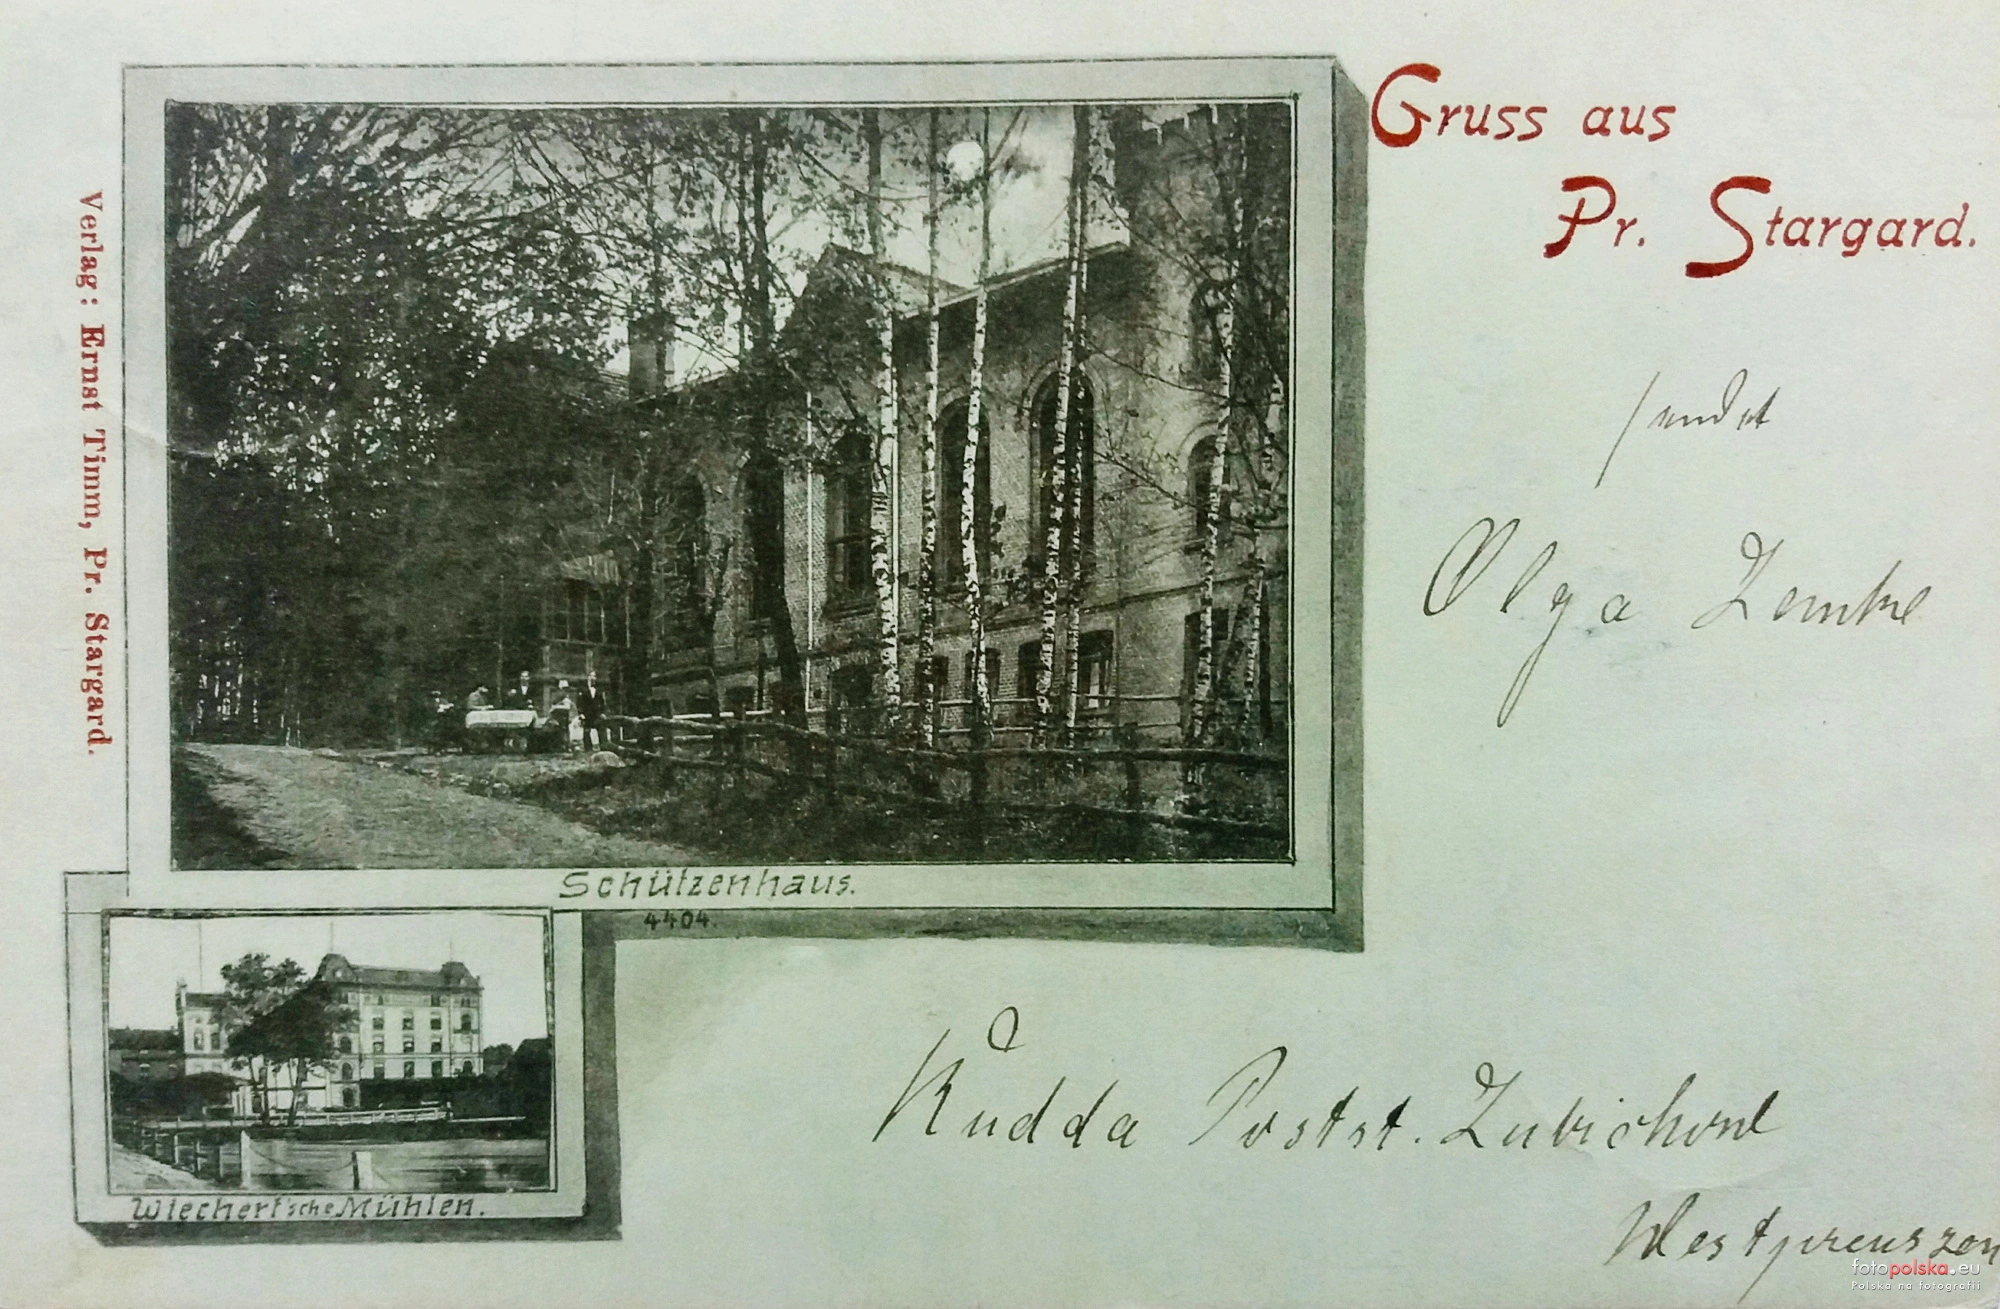 Gruss aus
Pr. Stargard.
Verlag: Ernst Timm, Pr. Stargard.
sendet
Olga Zemke
Schützenhaus.
4404.
Wiechert'sche Mühlen.
Kudda Postst.
Westpreuszen
fotopolska.eu
Polska na fotografii